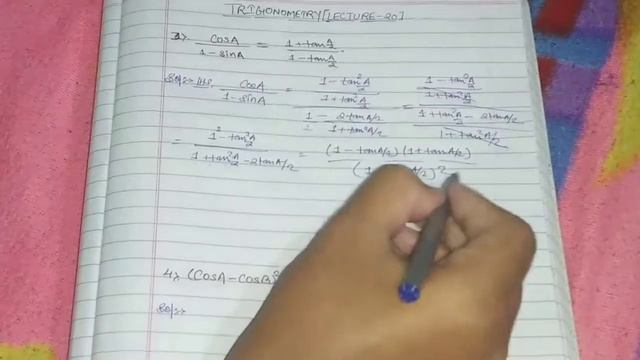 TRIGONOMETRY [LECTURE-20]
3) cosA / 1 - sinA = 1 + tan A/2 / 1 - tan A/2.
Sol:- LHS cosA / 1 - sinA = (1 - tan²A/2 / 1 + tan²A/2) / (1 - 2tanA/2 / 1 + tan²A/2) = (1 - tan²A/2 / 1 + tan²A/2) / (1 + tan²A/2 - 2tanA/2 / 1 + tan²A/2)
= 1² - tan²A/2 / 1 + tan²A/2 - 2tanA/2 = (1 - tanA/2)(1 + tanA/2) / (1 A/2)²
4) (cosA - cosB)
Sol:-